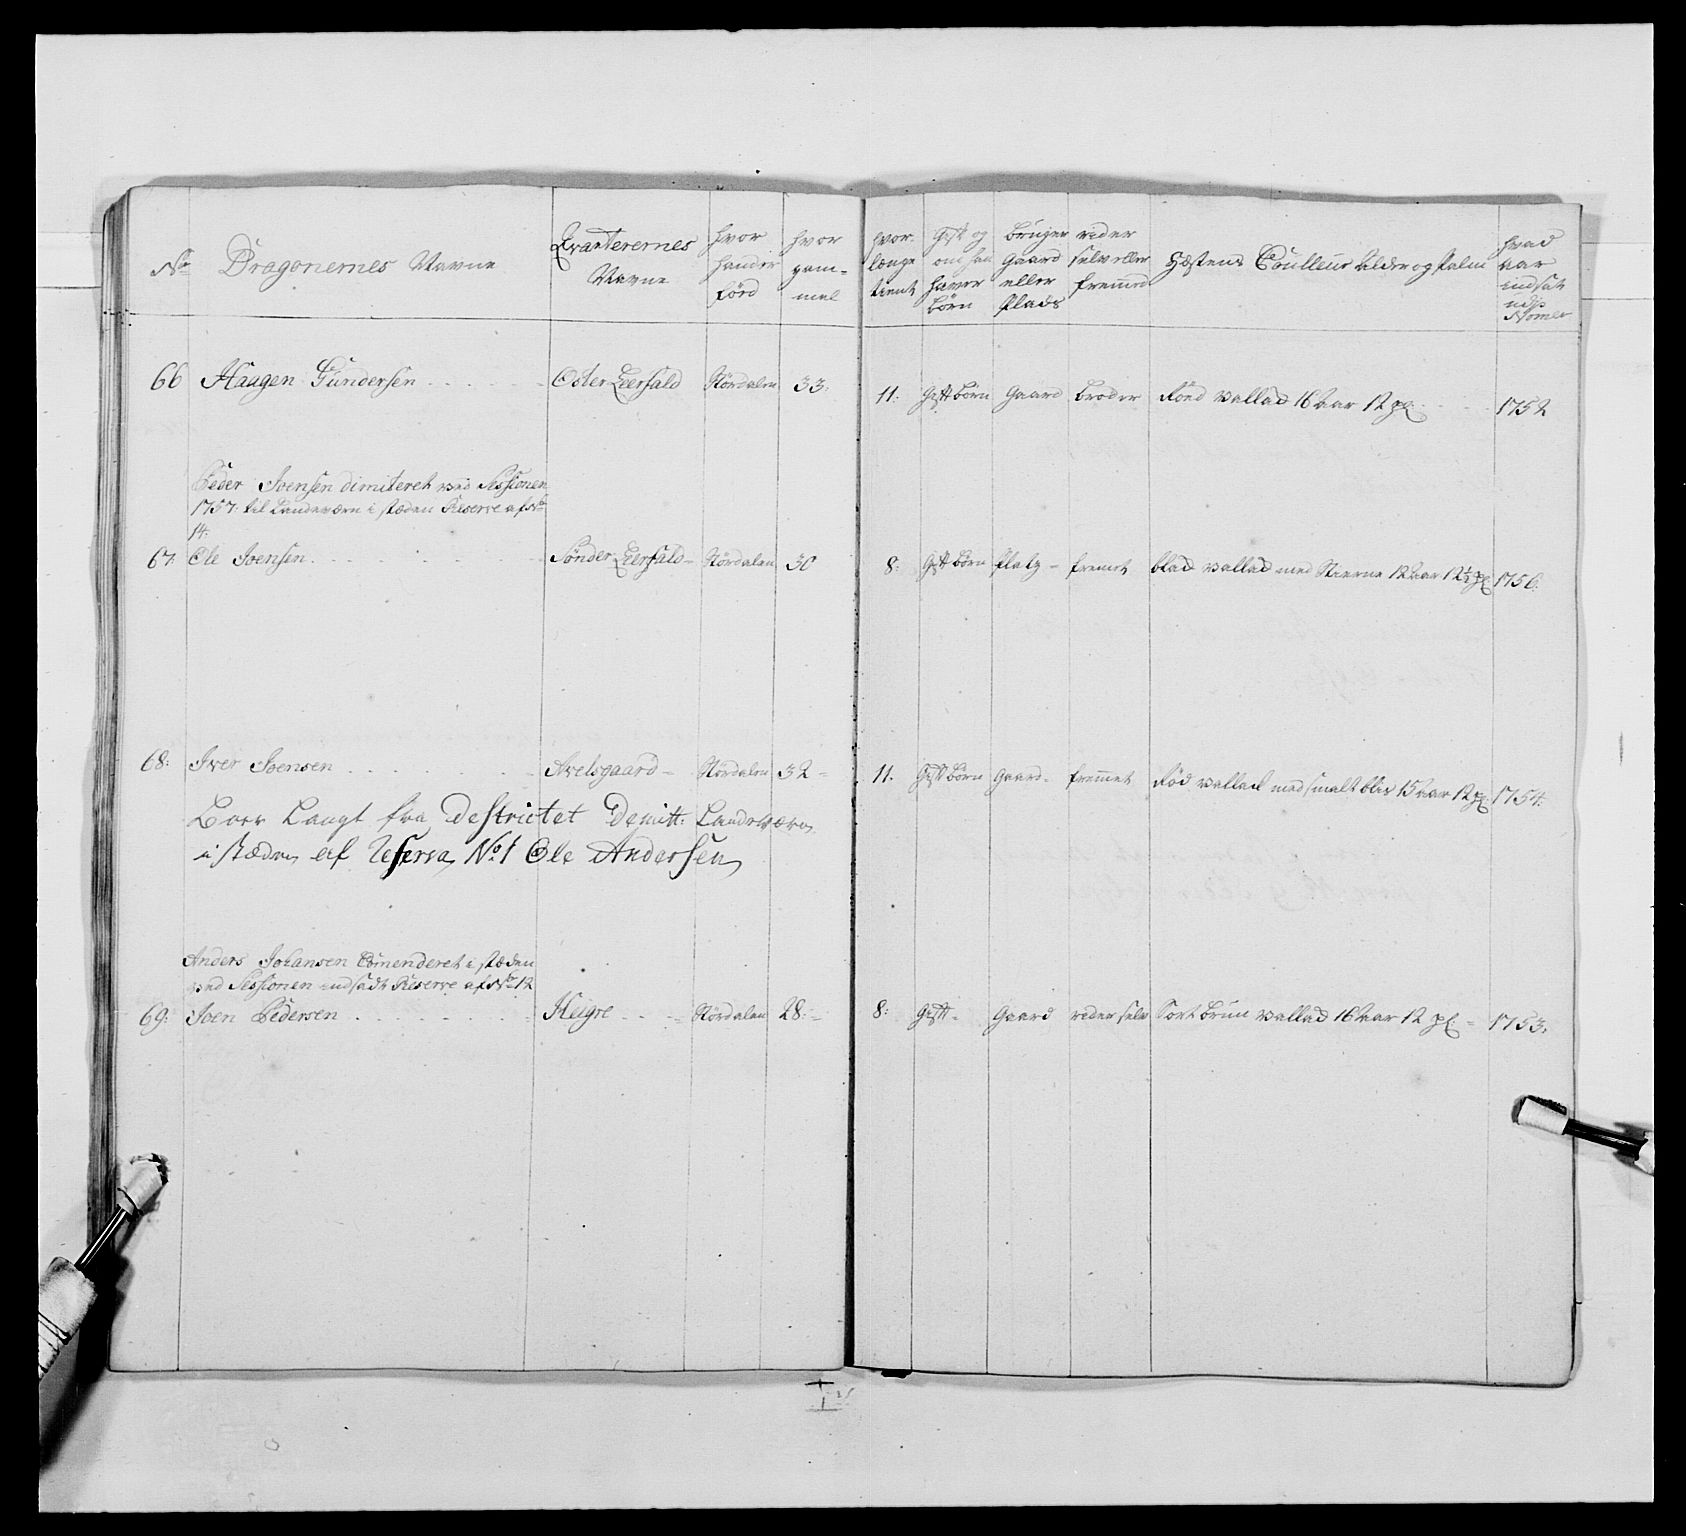 No Dragonernes Navne Qvarterernes Navne hvor hand er förd hvor gam- mel hvor længe tient Gift og om han haver börn bruger Gaard eller Plads rider selv eller fremmed Hæstens Coulleur alder og Palm hvad aar indsat udj Nomer
66 Haagen Gundersen Öster Leersald Størdalen 33: 11: Gift börn Gaard broder Röed vallad 16 aar 12 pl: 1752
Peder Joensen dimiteret ved Sessionen
1757: til Landeværn i stæden Reserve af No
14:
67: Ole Joensen Sönder Leersald Størdalen 30 8: Gift börn platz fremet blad vallad med Stierne 12 aar 12½ pl 1756:
68: Iver Joensen Avelsgaard Størdalen 32 11. Gift börn Gaard fremmet Röd vallack med smalt blis 15 aar 12 pl: 1754:
Boer Langt fra Destrictet Demitt: Landeværn
i stæden af Reserva No 1 Ole Andersen
Anders Johansen Comenderet i stæden
ved Sessionen indsadt Reserve af No 12
69: Joen Pedersen Heigre Størdalen 28: 8: Gift Gaard rider selv Sort brun vallad 16 aar 12 pl: 1753: